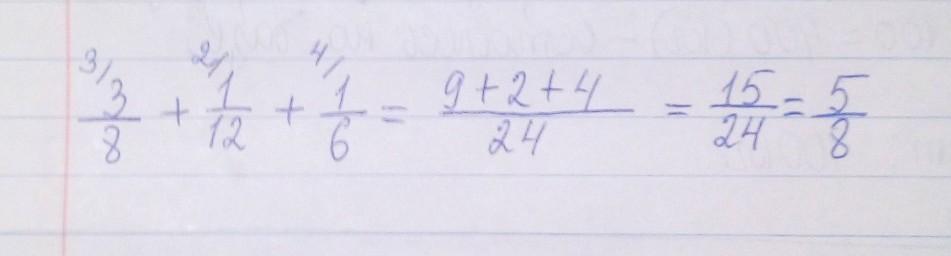 3/ 3/8 + 2/ 1/12 + 4/ 1/6 = (9+2+4)/24 = 15/24 = 5/8